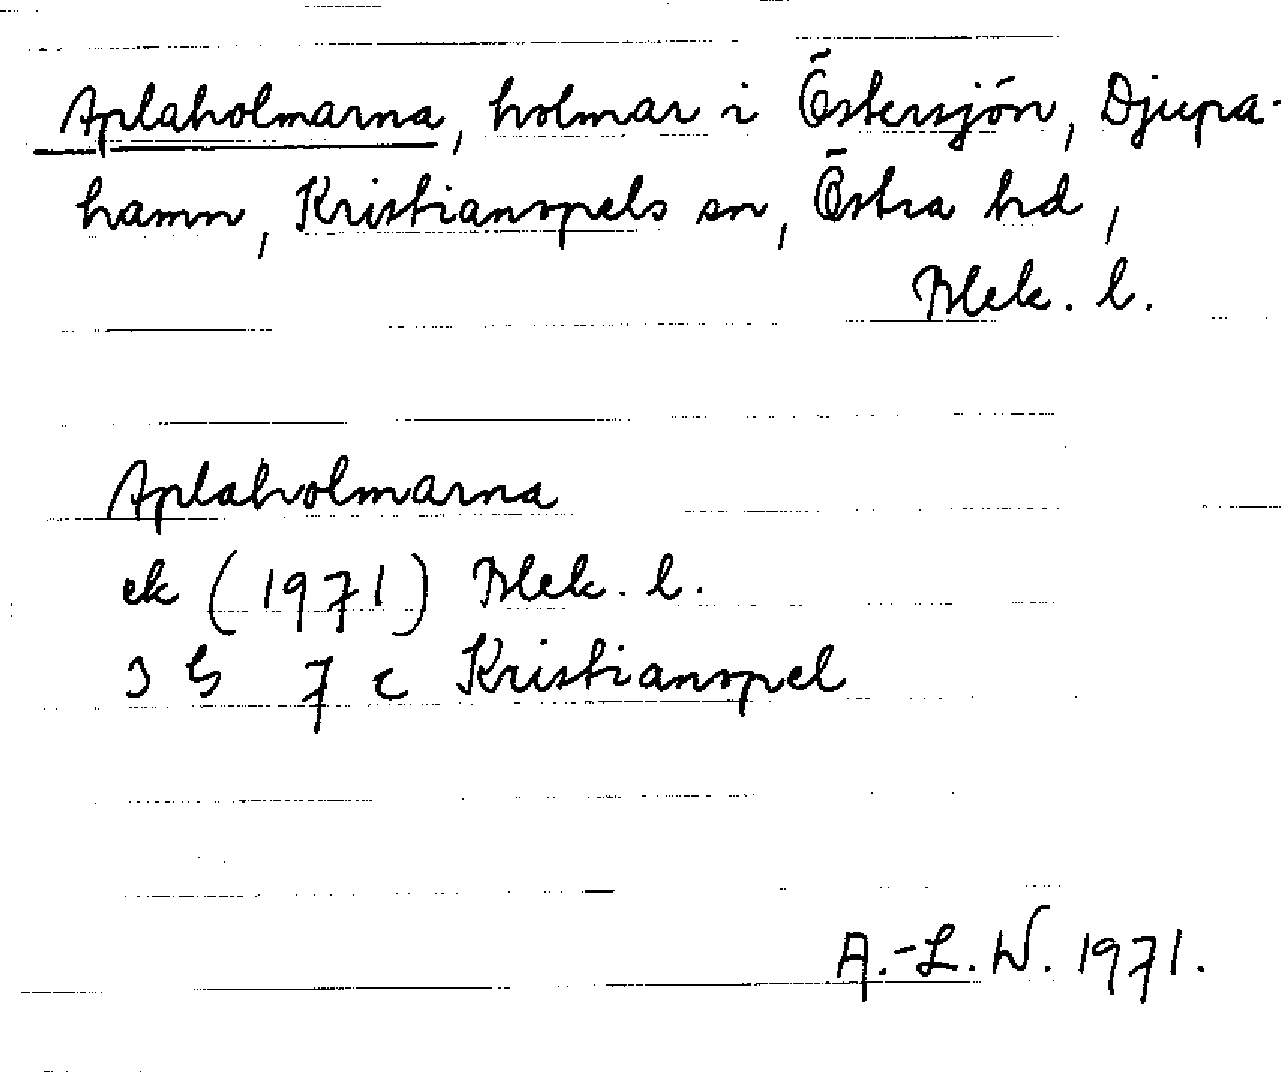 Aplaholmarna, holmar i Östersjön, Djupa-
hamn, Kristianopels sn, Östra hd,
Blek. l.
Aplaholmarna
ek (1971) Blek. l.
3 G 7 c Kristianopel
A.-L. W. 1971.